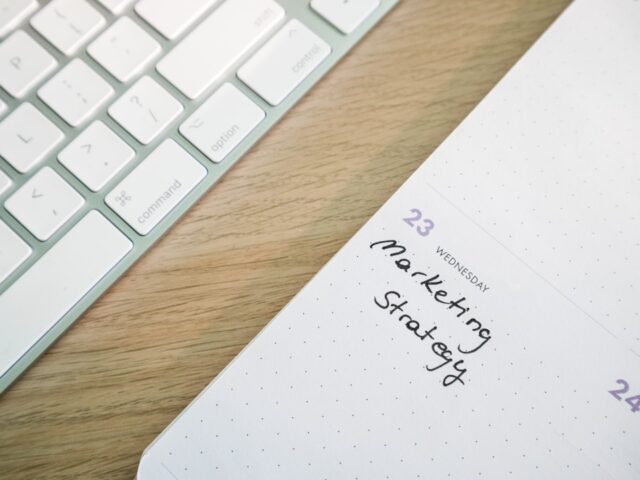 shift
control
P
:
;
"
'
?
/
option
L
>
.
⌘
command
<
,
23
WEDNESDAY
Marketing
Strategy
24